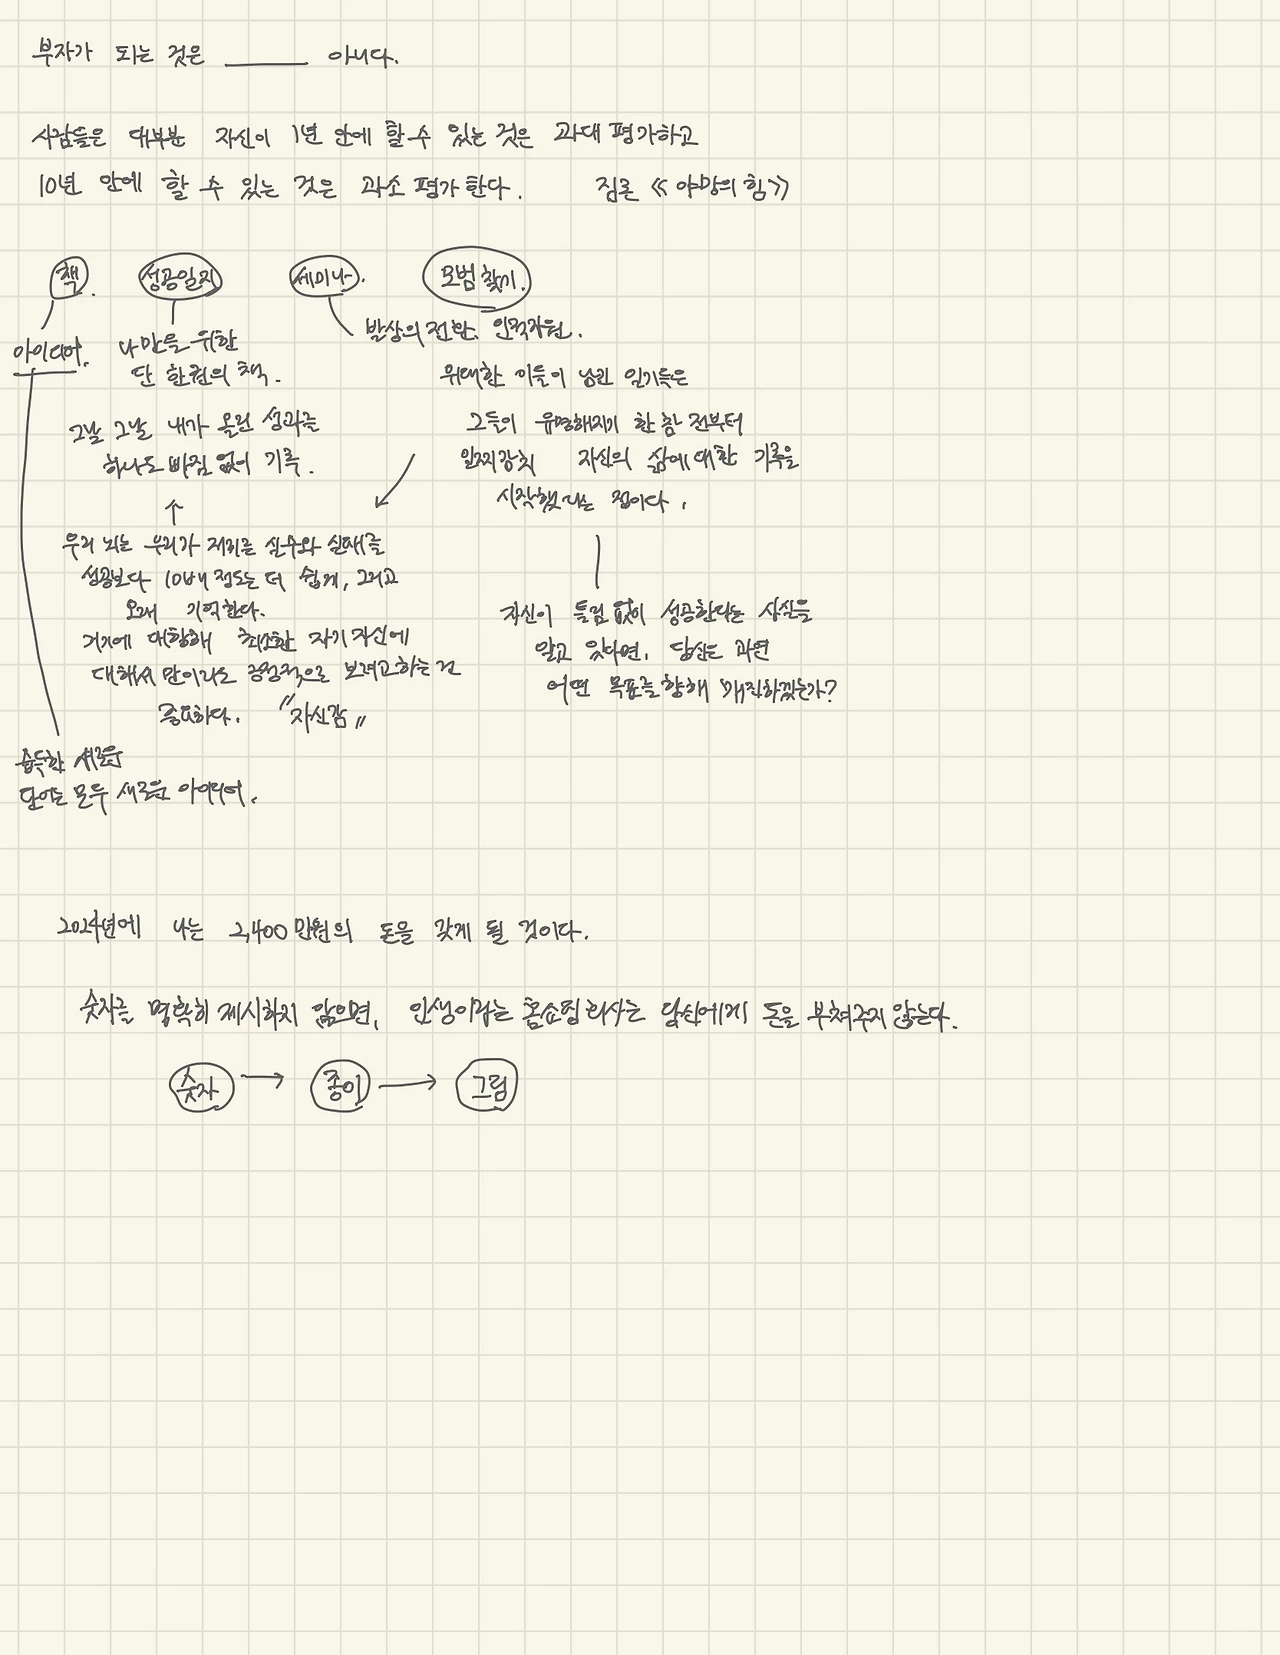 부자가 되는 것은 ______ 아니다.
사람들은 대부분 자신이 1년 안에 할 수 있는 것은 과대 평가하고
10년 안에 할 수 있는 것은 과소 평가 한다. 짐론 《야망의 힘》
책. 성공일지 세미나. 모범 찾기.
아이디어. 나만을 위한
단 한권의 책.
발상의 전환. 인적자원.
그날 그날 내가 올린 성과를
하나도 빠짐 없이 기록.
위대한 이들이 남긴 일기들은
그들이 유명해지기 한참 전부터
일찌감치 자신의 삶에 대한 기록을
시작했다는 점이다.
우리 뇌는 우리가 저지른 실수와 실패를
성공보다 10배 정도는 더 쉽게, 그리고
오래 기억한다.
거기에 대항해 최소한 자기 자신에
대해서 만이라도 긍정적으로 보려고 하는 건
중요하다. "자신감"
자신이 틀림 없이 성공한다는 사실을
알고 있다면, 당신은 과연
어떤 목표를 향해 매진하겠는가?
습득한 새로운
단어는 모두 새로운 아이디어.
2024년에 나는 2,400만원의 돈을 갖게 될 것이다.
숫자를 명확히 제시하지 않으면, 인생이라는 홈쇼핑 회사는 당신에게 돈을 부쳐주지 않는다.
숫자 → 종이 → 그림